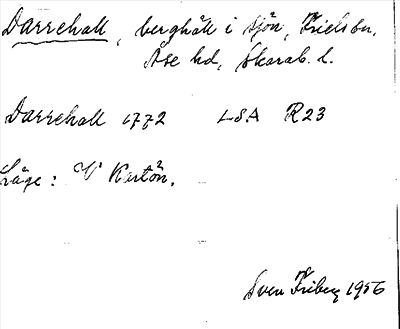 Darrehall, berghäll i sjön, Frielsbn.
Åse hd, Skarab. l.
Darrehall 1772 LSA R23
Läge: V Kartön.
Sven Friberg 1956